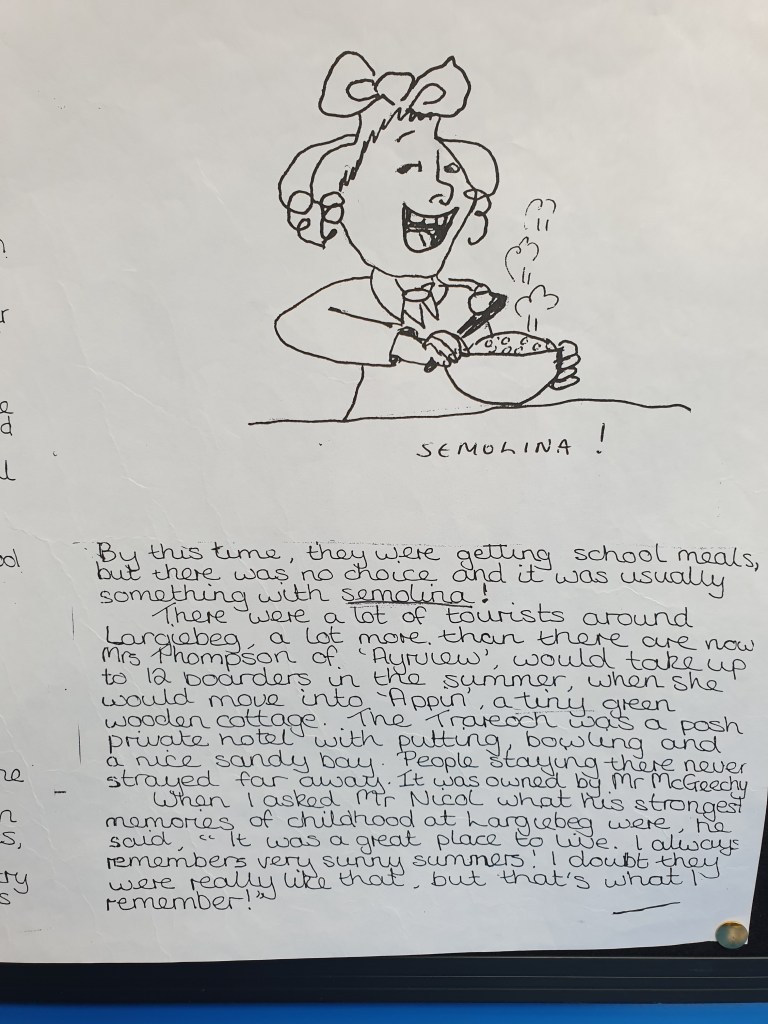 SEMOLINA !
By this time, they were getting school meals,
but there was no choice and it was usually
something with semolina!
There were a lot of tourists around
Largiebeg, a lot more than there are now
Mrs Thompson of 'Ayrview', would take up
to 12 boarders in the summer, when she
would move into 'Appin', a tiny green
wooden cottage. The Trareoch was a posh
private hotel with putting, bowling and
a nice sandy bay. People staying there never
strayed far away. It was owned by Mr McGeechy
When I asked Mr Nicol what his strongest
memories of childhood at Largiebeg were, he
said, "It was a great place to live. I always
remembers very sunny summers! I doubt they
were really like that, but that's what I
remember!"